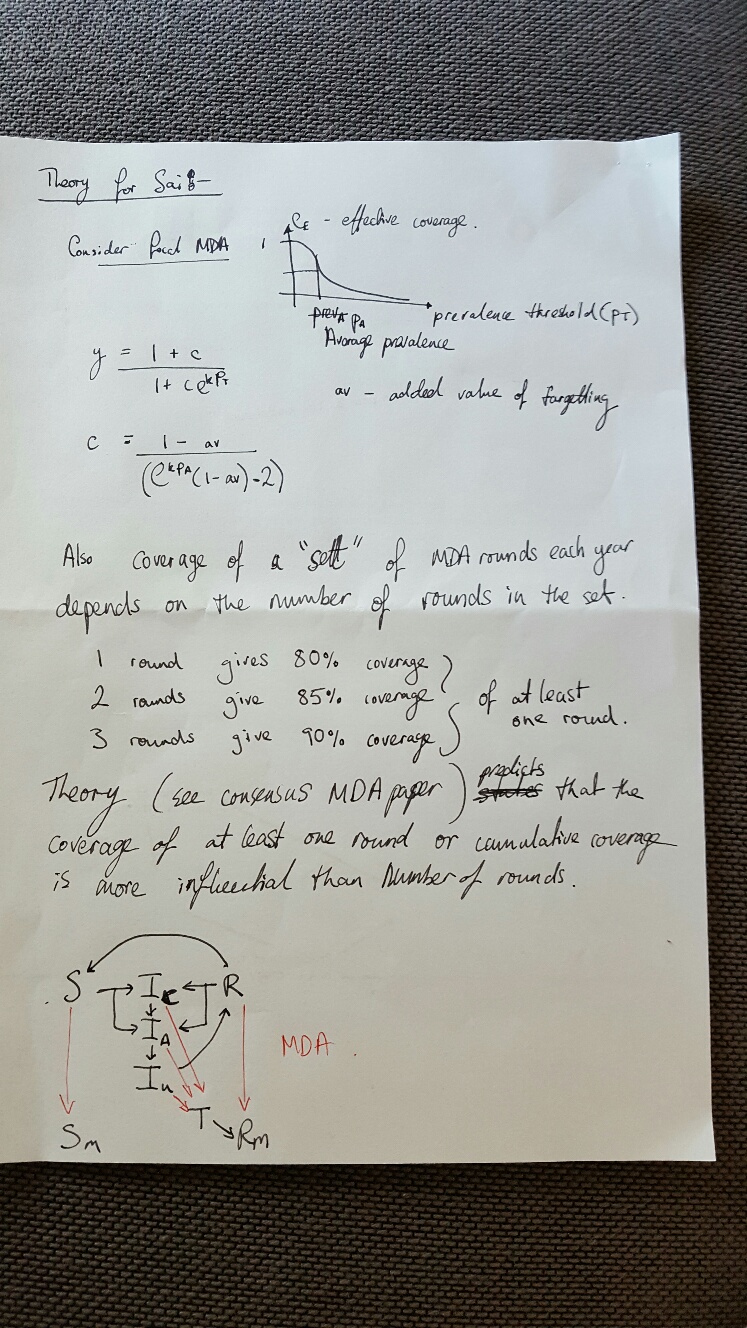 Theory for Saif
Consider focal MDA
1
CE - effective coverage.
prevA PA
prevalence threshold (PT)
Avorage prevalence
y = 1 + c / 1 + c e^kPT
av - added value of targetting
c = 1 - av / (e^kPA (1 - av) - 2)
Also coverage of a "sett" of MDA rounds each year
depends on the number of rounds in the set.
1 round gives 80% coverage
2 rounds give 85% coverage
3 rounds give 90% coverage
of at least
one round.
Theory (see consensus MDA paper) states predicts that the
coverage of at least one round or cumulative coverage
is more influential than Number of rounds.
S → Ic ← R
IA
Iu
MDA.
T
Sm
Rm